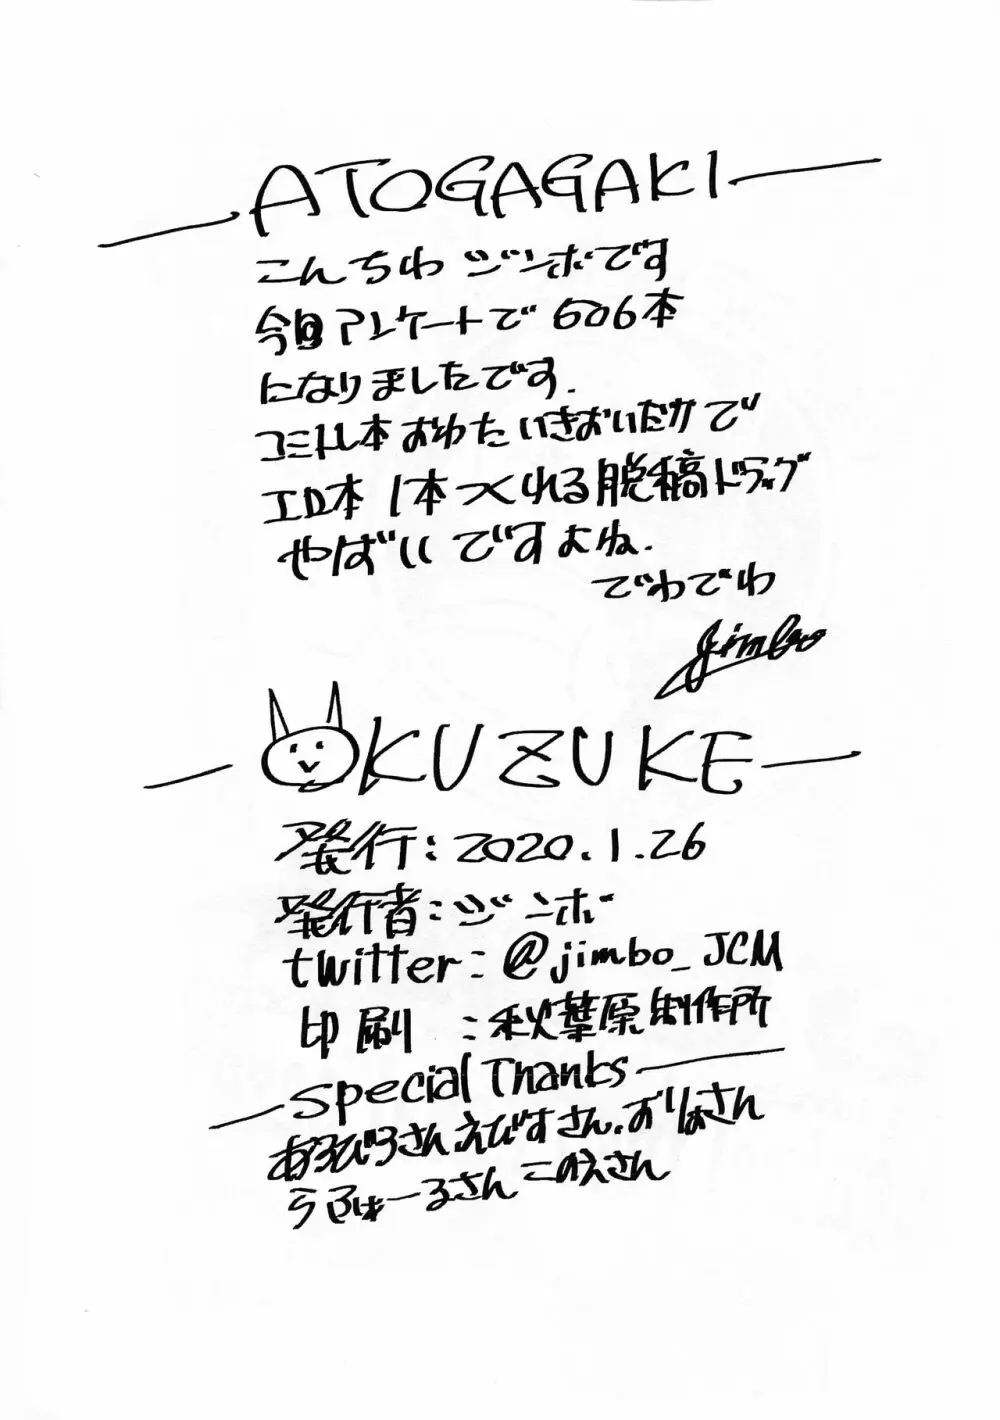 ATOGAGAKI
こんちわ ジンボです
今回アンケートで 606本
になりましたです.
コミトレ本おわたいきおいだけで
エロ本 1本つくれる脱稿ドラッグ
やばいですよね.
でわでわ
jimbo
OKUZUKE
発行:2020.1.26
発行者:ジンボ
twitter:@jimbo_JCM
印刷 :秋葉原制作所
Special Thanks
あろひろさん えびすさん.おりょさん
うふぁーるさん このえさん